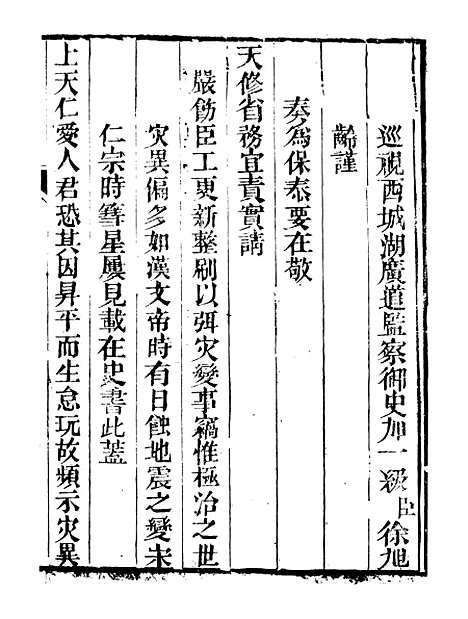 巡視西城湖廣道監察御史加一級臣徐旭
齡謹
奏為保泰要在敬
天修省務宜責實請
嚴飭臣工更新整刷以弭灾變事竊惟極治之世
灾異偏多如漢文帝時有日蝕地震之變宋
仁宗時彗星屢見載在史書此蓋
上天仁愛人君恐其因昇平而生怠玩故頻示灾異